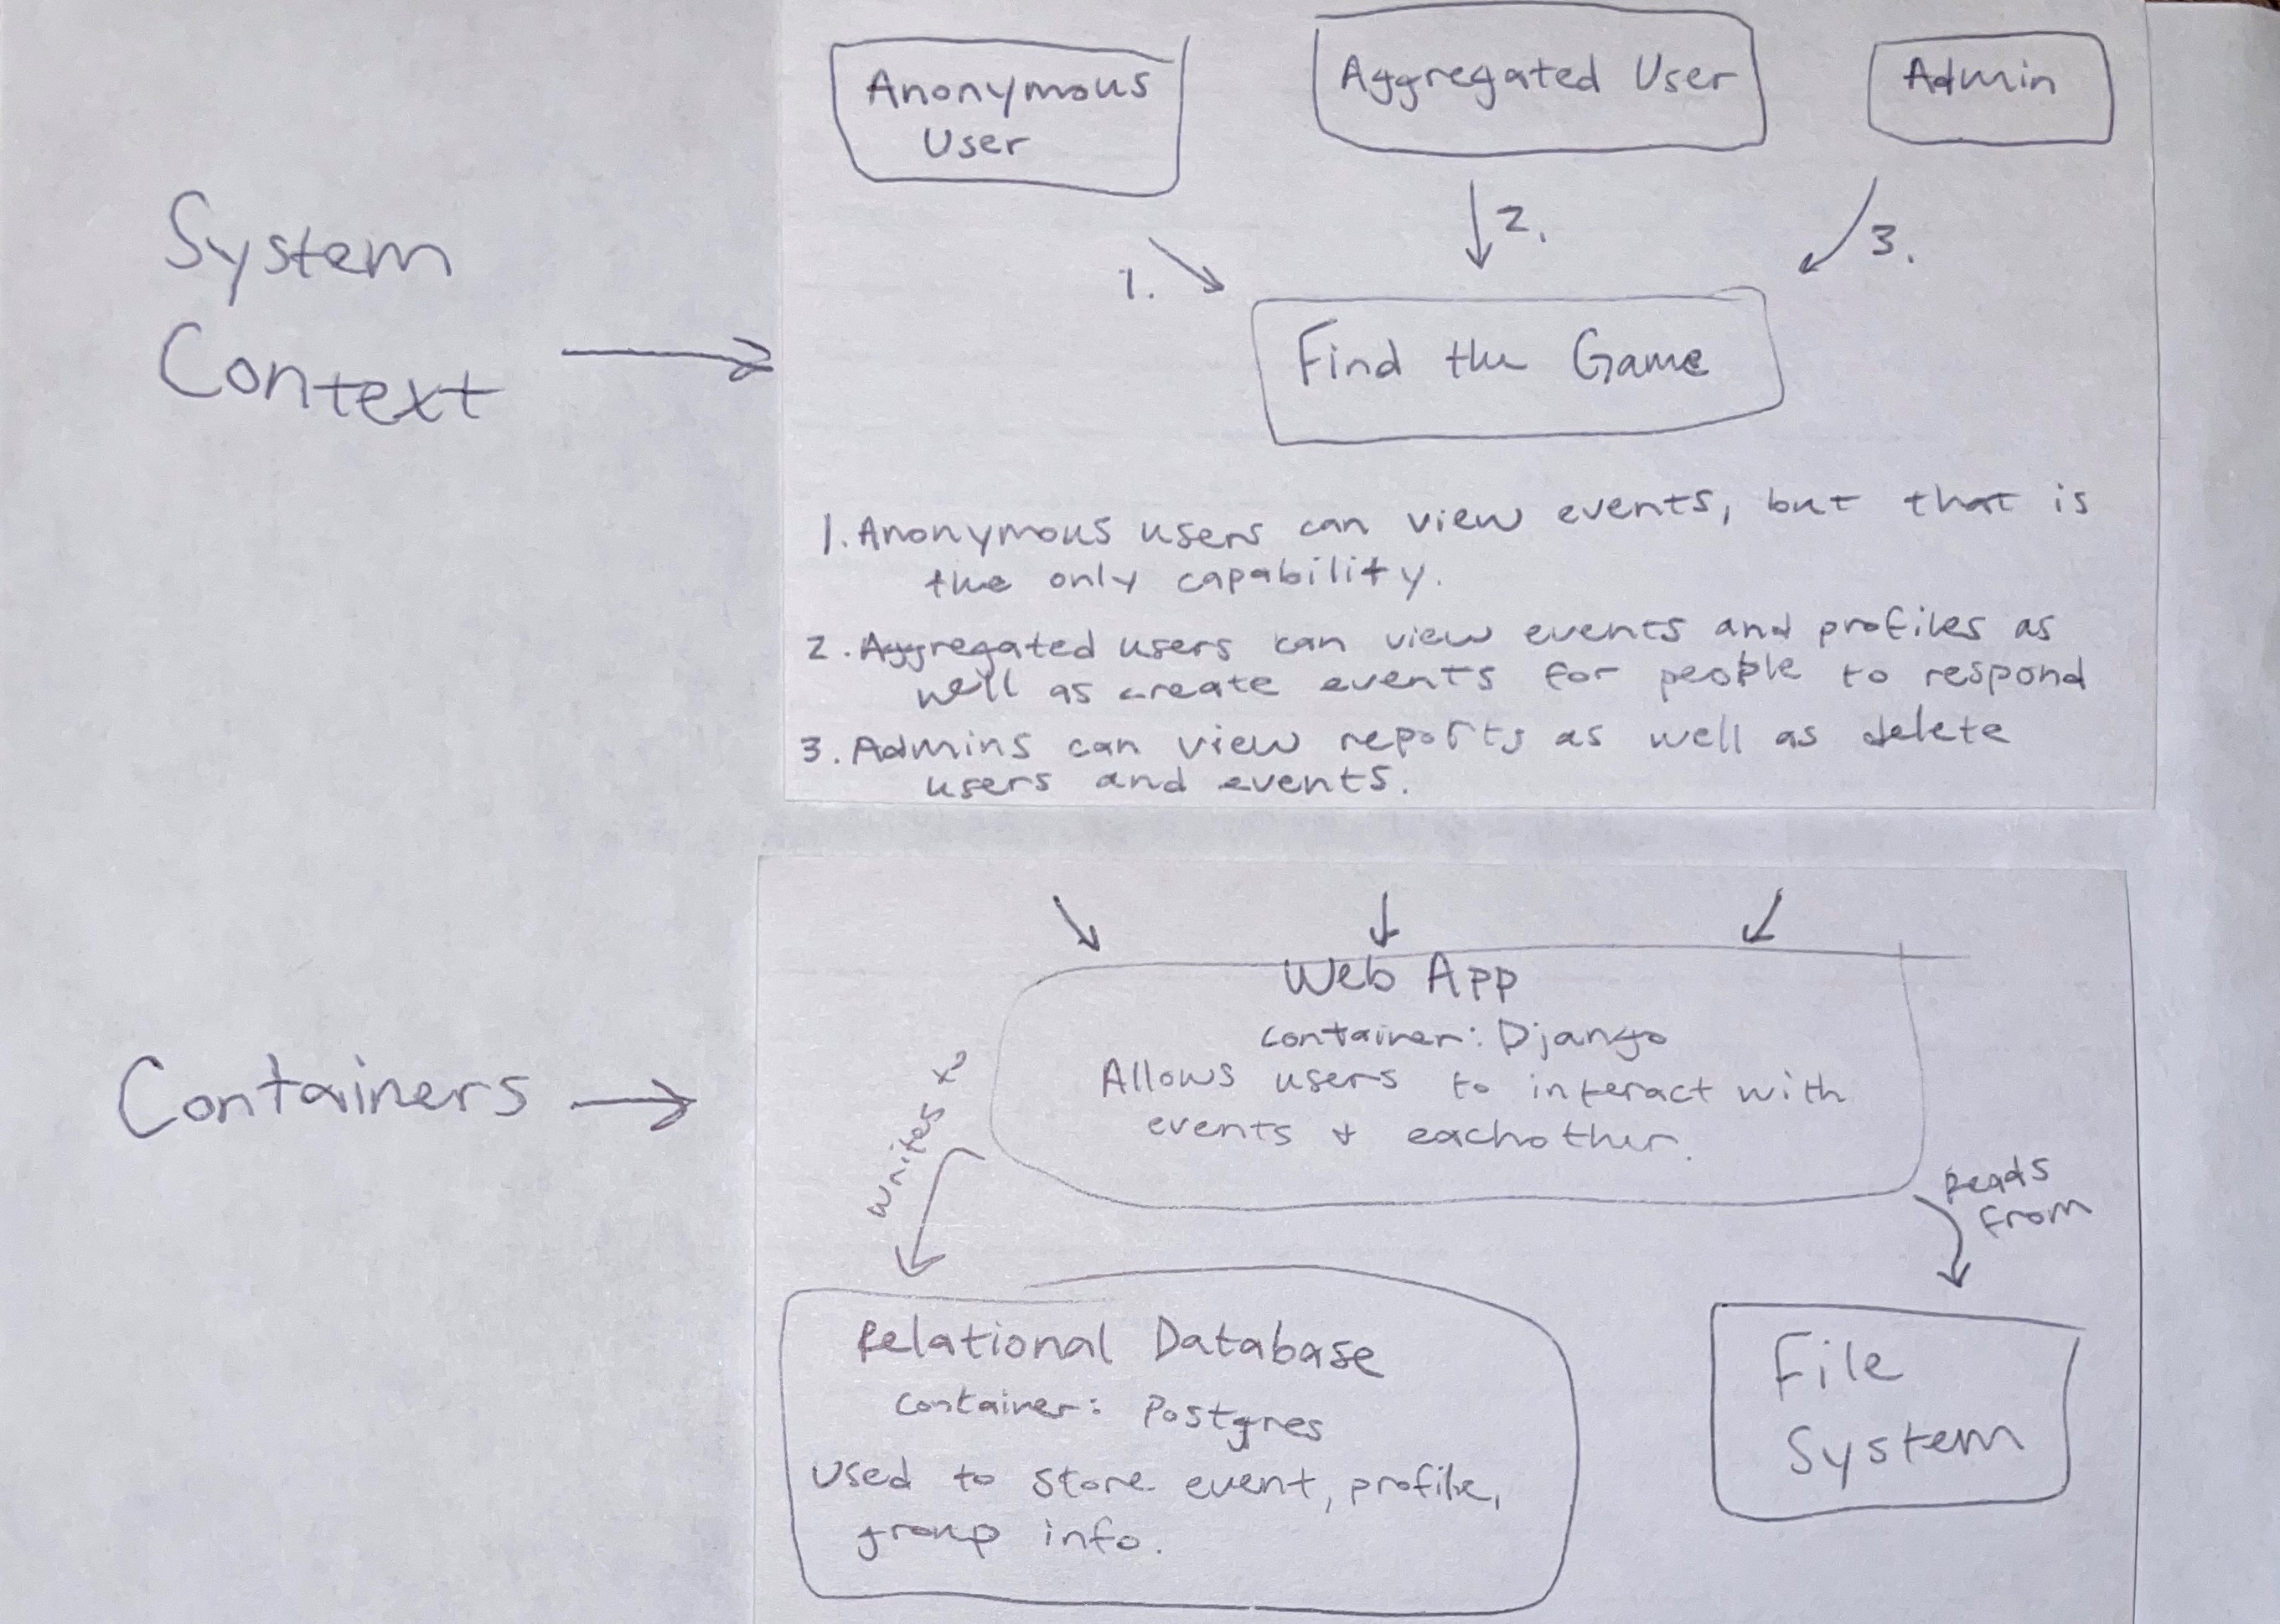 Anonymous
User
Aggregated User
Admin
1.
2.
3.
System
Context
Find the Game
1. Anonymous users can view events, but that is
the only capability.
2. Aggregated users can view events and profiles as
well as create events for people to respond
3. Admins can view reports as well as delete
users and events.
Web App
container: Django
Allows users to interact with
events + eachother.
Containers
writes to
reads
from
Relational Database
container: Postgres
used to store event, profile,
group info.
File
System